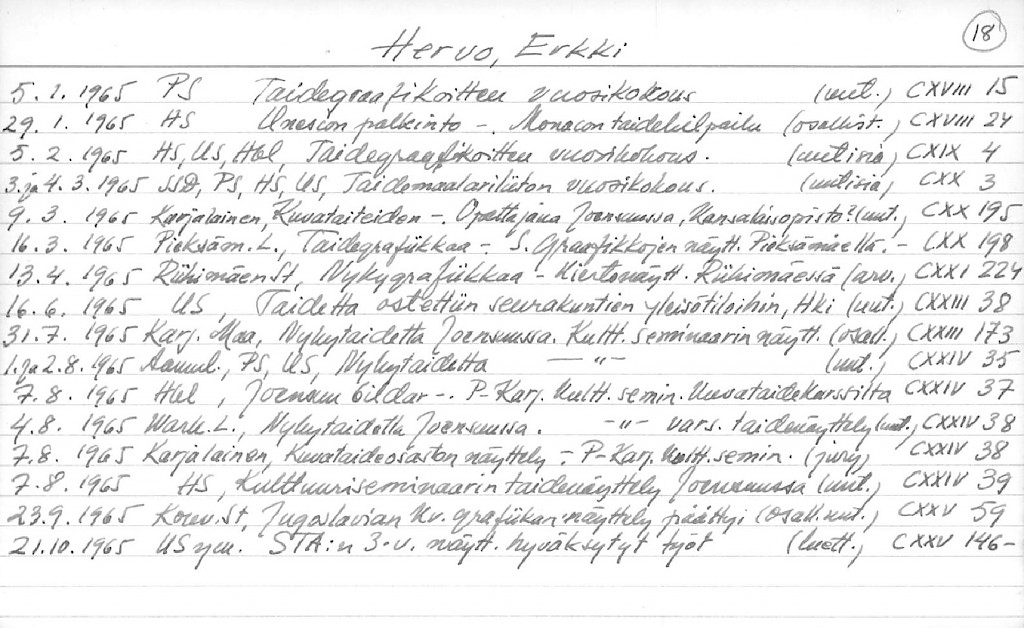 18
Hervo, Erkki
5.1.1965 PS Taidegraafikoitten vuosikokous (uut.) CXVIII 15
29.1.1965 HS Unescon palkinto -. Monacon taidekilpailu (osallist.) CXVIII 24
5.2.1965 HS, US, Hbl, Taidegraafikoitten vuosikokous. (uutisia) CXIX 4
3.ja 4.3.1965 SSD, PS, HS, US, Taidemaalariliiton vuosikokous. (uutisia) CXX 3
9.3.1965 Karjalainen, Kuvataiteiden -. Opettajana Joensuussa, Kansalaisopisto? (uut.) CXX 195
16.3.1965 Pieksäm. L., Taidegrafiikkaa -. S. Graafikkojen näytt. Pieksämäellä. - CXX 198
13.4.1965 Riihimäen St, Nykygrafiikkaa - Kiertonäytt. Riihimäessä (arv.) CXXI 224
16.6.1965 US, Taidetta ostettiin seurakuntien yleisötiloihin, Hki (uut.) CXXIII 38
31.7.1965 Karj. Maa, Nykytaidetta Joensuussa. Kultt. seminaarin näytt. (osall.) CXXIII 173
1.ja 2.8.1965 Aamul., PS, US, Nykytaidetta —"— (uut.) CXXIV 35
7.8.1965 Hbl, Joensuu bildar -. P-Karj. Kultt. semin. Kuvataidekurssilta CXXIV 37
4.8.1965 Wark. L., Nykytaidetta Joensuussa. -"- vars. taidenäyttely (uut.) CXXIV 38
7.8.1965 Karjalainen, Kuvataideosaston näyttely -. P-Karj. Kultt. semin. (jury) CXXIV 38
7.8.1965 HS, Kulttuuriseminaarin taidenäyttely Joensuussa (uut.) CXXIV 39
23.9.1965 Kouv. St, Jugoslavian kv. grafiikan näyttely päättyi (osall. uut.) CXXV 59
21.10.1965 US ym. STA:n 3-v. näytt. hyväksytyt työt (luett.) CXXV 146-